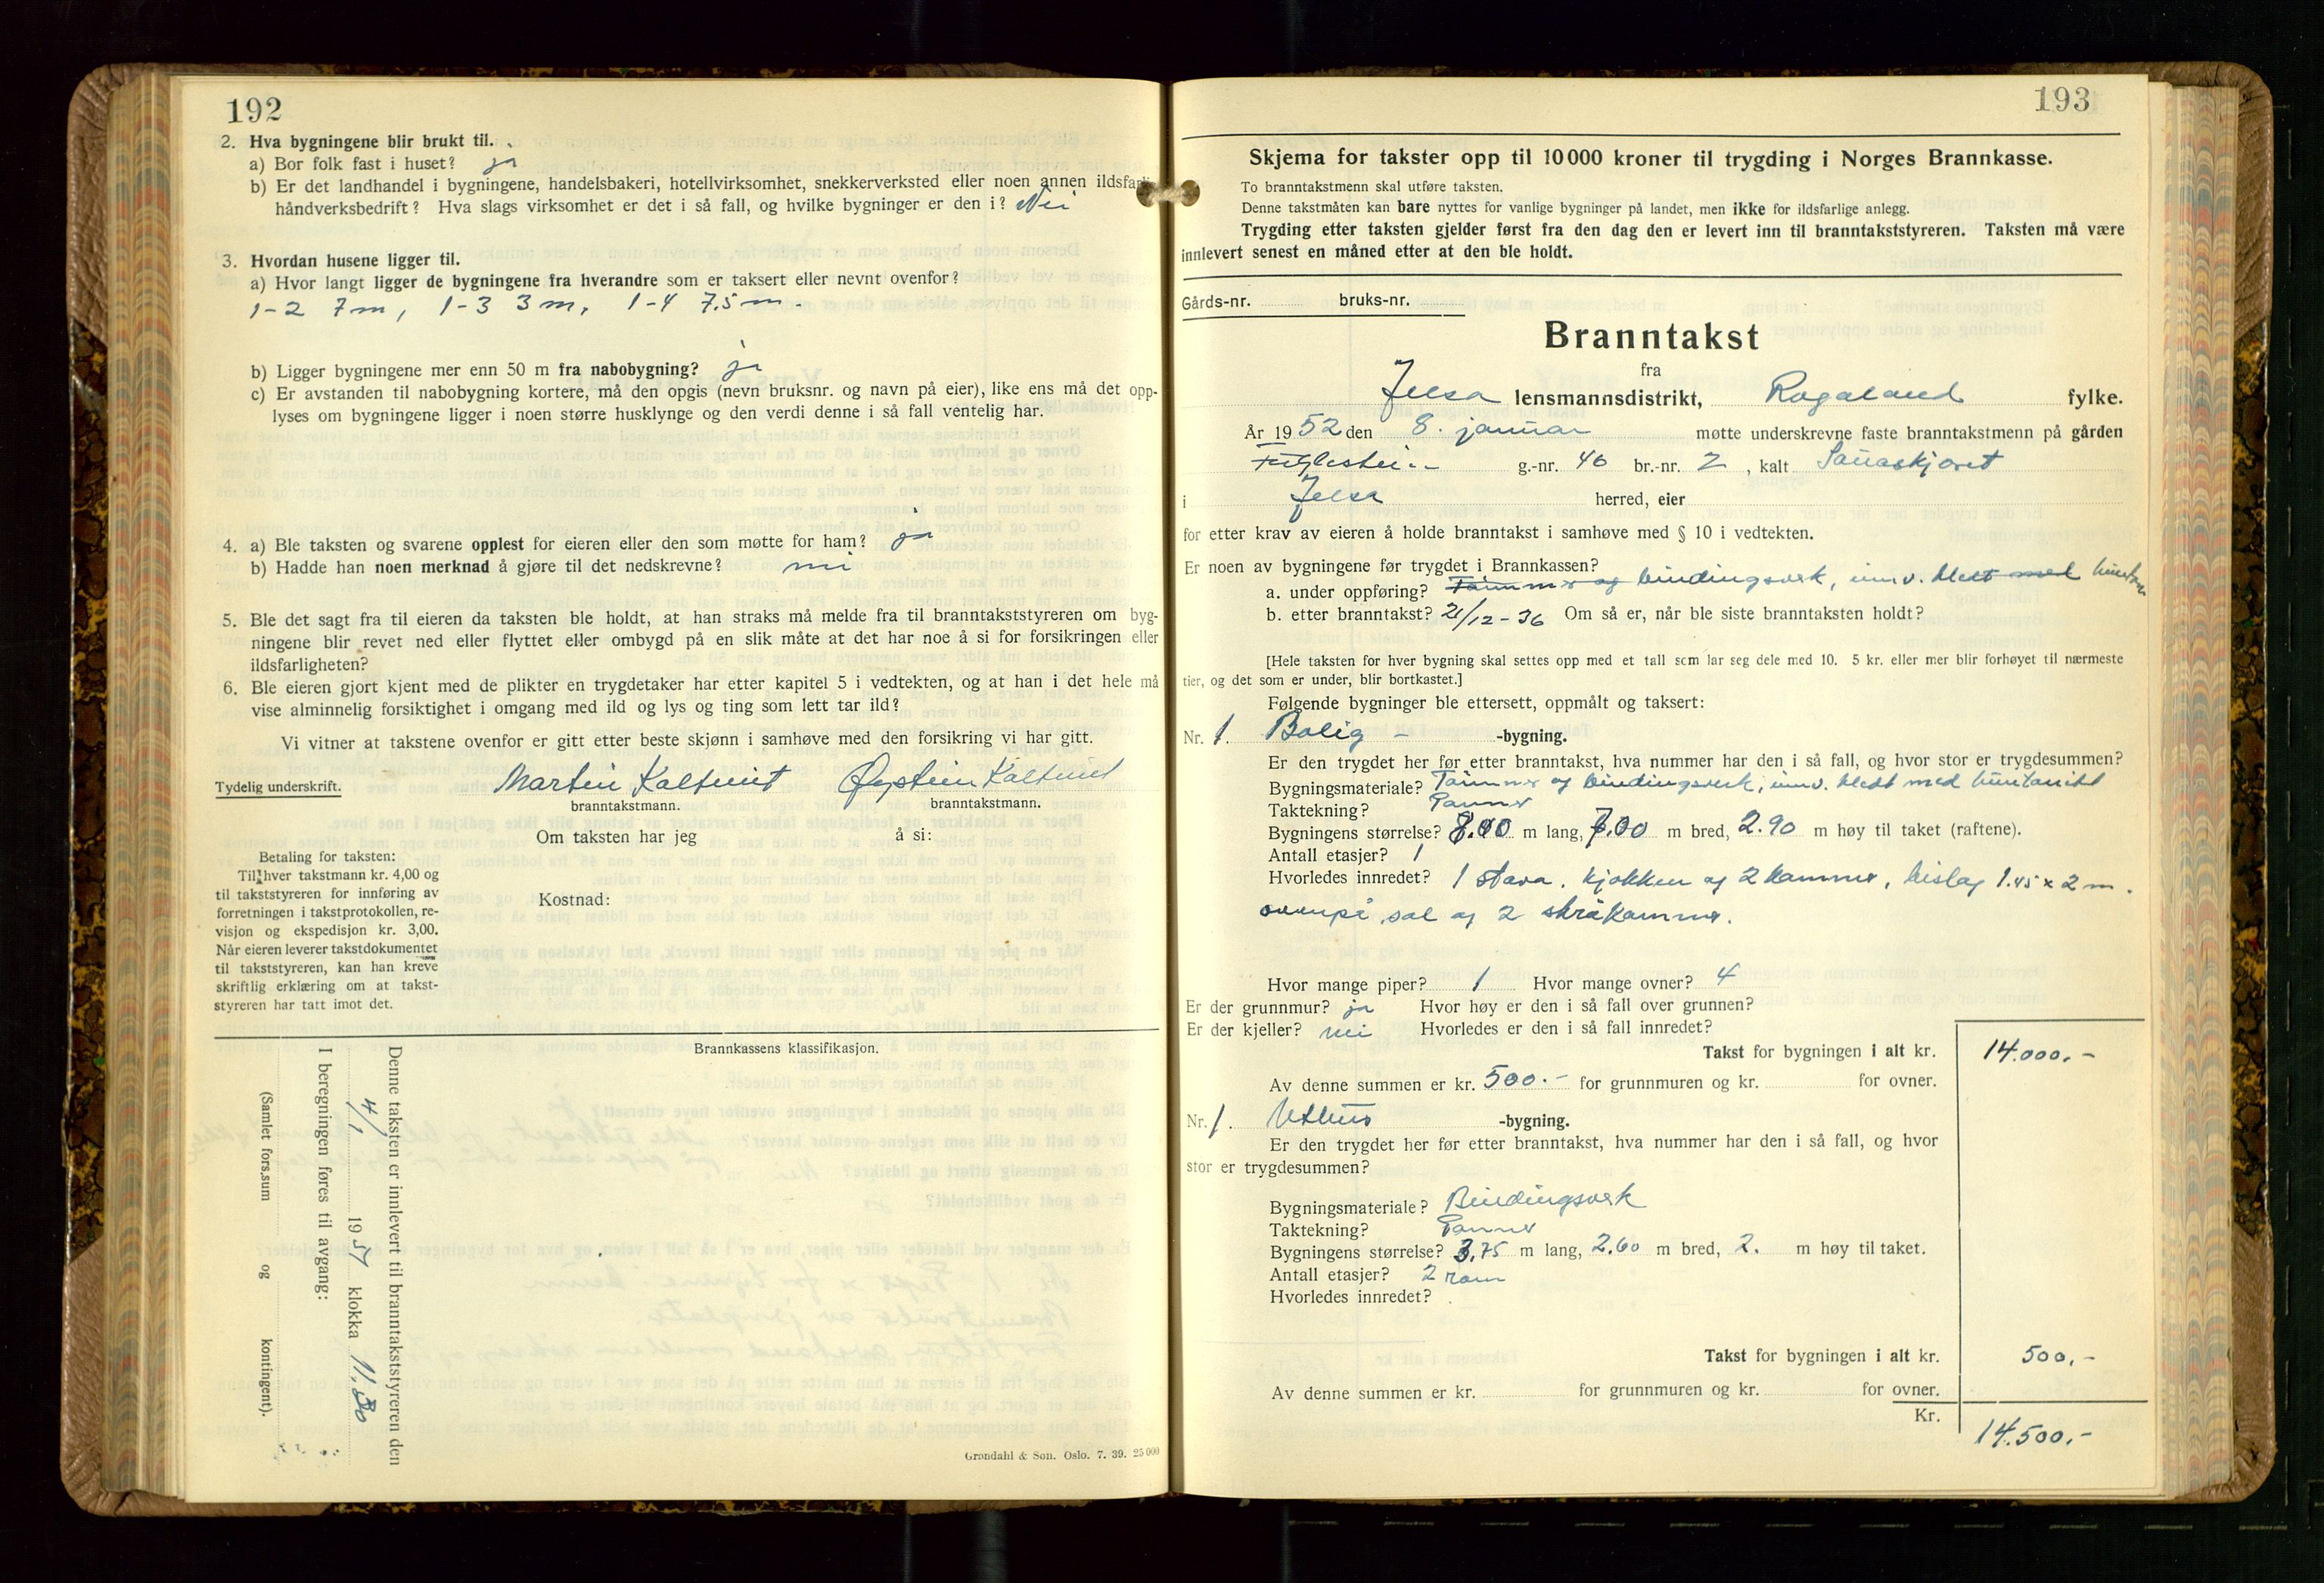 192
2. Hva bygningene blir brukt til.
a) Bor folk fast i huset? ja
b) Er det landhandel i bygningene, handelsbakeri, hotellvirksomhet, snekkerverksted eller noen annen ildsfarlig
håndverksbedrift? Hva slags virksomhet er det i så fall, og hvilke bygninger er den i? Nei
3. Hvordan husene ligger til.
a) Hvor langt ligger de bygningene fra hverandre som er taksert eller nevnt ovenfor?
1-2 7 m, 1-3 3 m, 1-4 7,5 m -
b) Ligger bygningene mer enn 50 m fra nabobygning? ja
c) Er avstanden til nabobygning kortere, må den opgis (nevn bruksnr. og navn på eier), like ens må det opp-
lyses om bygningene ligger i noen større husklynge og den verdi denne i så fall ventelig har.
4. a) Ble taksten og svarene opplest for eieren eller den som møtte for ham? ja
b) Hadde han noen merknad å gjøre til det nedskrevne? nei
5. Ble det sagt fra til eieren da taksten ble holdt, at han straks må melde fra til branntakststyreren om byg-
ningene blir revet ned eller flyttet eller ombygd på en slik måte at det har noe å si for forsikringen eller
ildsfarligheten?
6. Ble eieren gjort kjent med de plikter en trygdetaker har etter kapitel 5 i vedtekten, og at han i det hele må
vise alminnelig forsiktighet i omgang med ild og lys og ting som lett tar ild?
Vi vitner at takstene ovenfor er gitt etter beste skjønn i samhøve med den forsikring vi har gitt.
Tydelig underskrift. Martin Kaltveit Øystein Kaltveit
branntakstmann. branntakstmann.
Om taksten har jeg å si:
Betaling for taksten:
Til hver takstmann kr. 4,00 og
til takststyreren for innføring av
forretningen i takstprotokollen, re-
visjon og ekspedisjon kr. 3,00.
Når eieren leverer takstdokumentet
til takststyreren, kan han kreve
skriftlig erklæring om at takst-
styreren har tatt imot det.
Kostnad:
Brannkassens klassifikasjon.
Denne taksten er innlevert til branntakststyreren den
4/1 1951 klokka 11.30
I beregningen føres til avgang:
(Samlet fors.sum og kontingent).
Grøndahl & Søn. Oslo. 7. 39. 25 000
193
Skjema for takster opp til 10 000 kroner til trygding i Norges Brannkasse.
To branntakstmenn skal utføre taksten.
Denne takstmåten kan bare nyttes for vanlige bygninger på landet, men ikke for ildsfarlige anlegg.
Trygding etter taksten gjelder først fra den dag den er levert inn til branntakststyreren. Taksten må være
innlevert senest en måned etter at den ble holdt.
Gårds-nr. bruks-nr.
Branntakst
fra
Jelsa lensmannsdistrikt, Rogaland fylke.
År 1952 den 8. januar møtte underskrevne faste branntakstmenn på gården
g.-nr. 46 br.-nr. 2, kalt Sauaskjæret
i Jelsa herred, eier
for etter krav av eieren å holde branntakst i samhøve med § 10 i vedtekten.
Er noen av bygningene før trygdet i Brannkassen?
a. under oppføring? Tømmer og bindingsverk, innv. kledt med
b. etter branntakst? 21/12-36 Om så er, når ble siste branntaksten holdt?
[Hele taksten for hver bygning skal settes opp med et tall som lar seg dele med 10. 5 kr. eller mer blir forhøyet til nærmeste
tier, og det som er under, blir bortkastet.]
Følgende bygninger ble ettersett, oppmålt og taksert:
Nr. 1. Bolig - -bygning.
Er den trygdet her før etter branntakst, hva nummer har den i så fall, og hvor stor er trygdesummen?
Bygningsmateriale? Tømmer og bindingsverk, innv. kledt med huntonitt
Taktekning? Panner
Bygningens størrelse? 8.00 m lang, 7.00 m bred, 2.90 m høy til taket (raftene).
Antall etasjer? 1
Hvorledes innredet? 1 stova, kjøkken og 2 kammer, bislag 1.45 x 2 m.
ovenpå sal og 2 skråkammer.
Hvor mange piper? 1 Hvor mange ovner? 4
Er der grunnmur? ja Hvor høy er den i så fall over grunnen?
Er der kjeller? nei Hvorledes er den i så fall innredet?
Takst for bygningen i alt kr. 14.000.-
Av denne summen er kr. 500.- for grunnmuren og kr. for ovner.
Nr. 1. Uthus -bygning.
Er den trygdet her før etter branntakst, hva nummer har den i så fall, og hvor
stor er trygdesummen?
Bygningsmateriale? Bindingsverk
Taktekning? Panner
Bygningens størrelse? 3.75 m lang, 2.60 m bred, 2. m høy til taket.
Antall etasjer? 2 rom
Hvorledes innredet?
Takst for bygningen i alt kr. 500,-
Av denne summen er kr. for grunnmuren og kr. for ovner.
Kr. 14.500,-